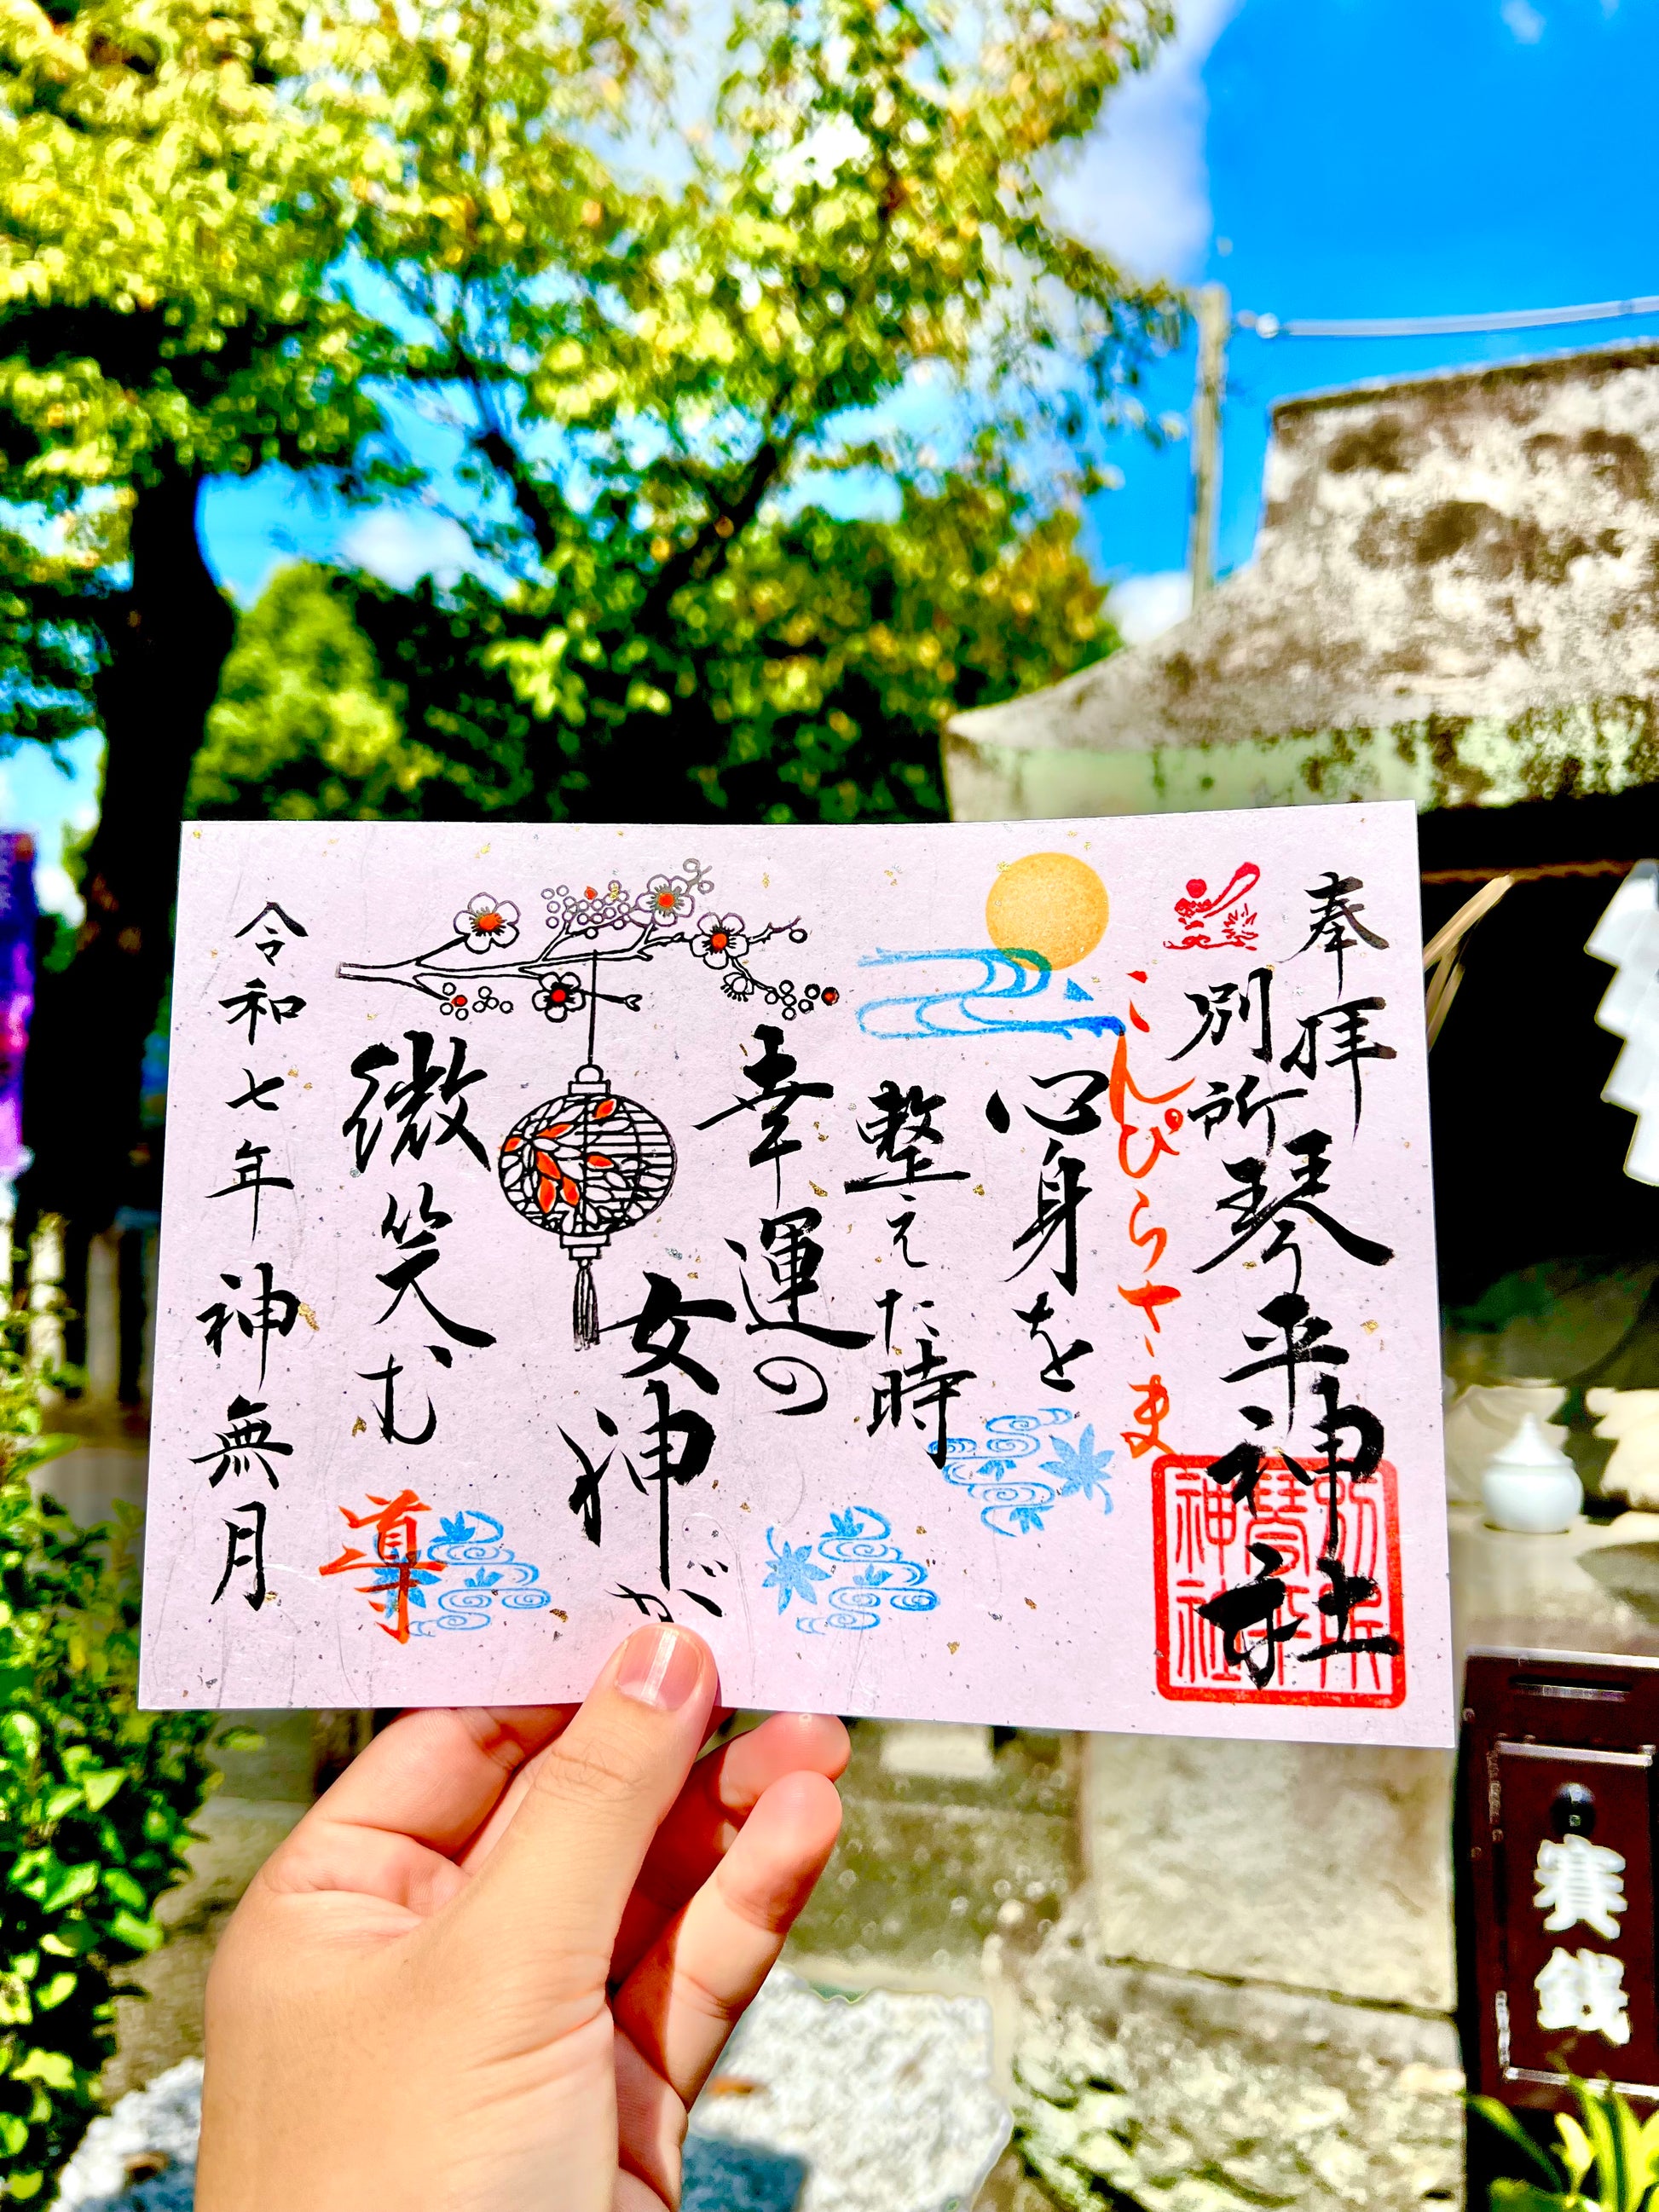 奉拝
別所琴平神社
こんぴらさま
心身を
整えた時
幸運の
女神が
微笑む
導
令和七年神無月
別所
琴平
神社
賽銭